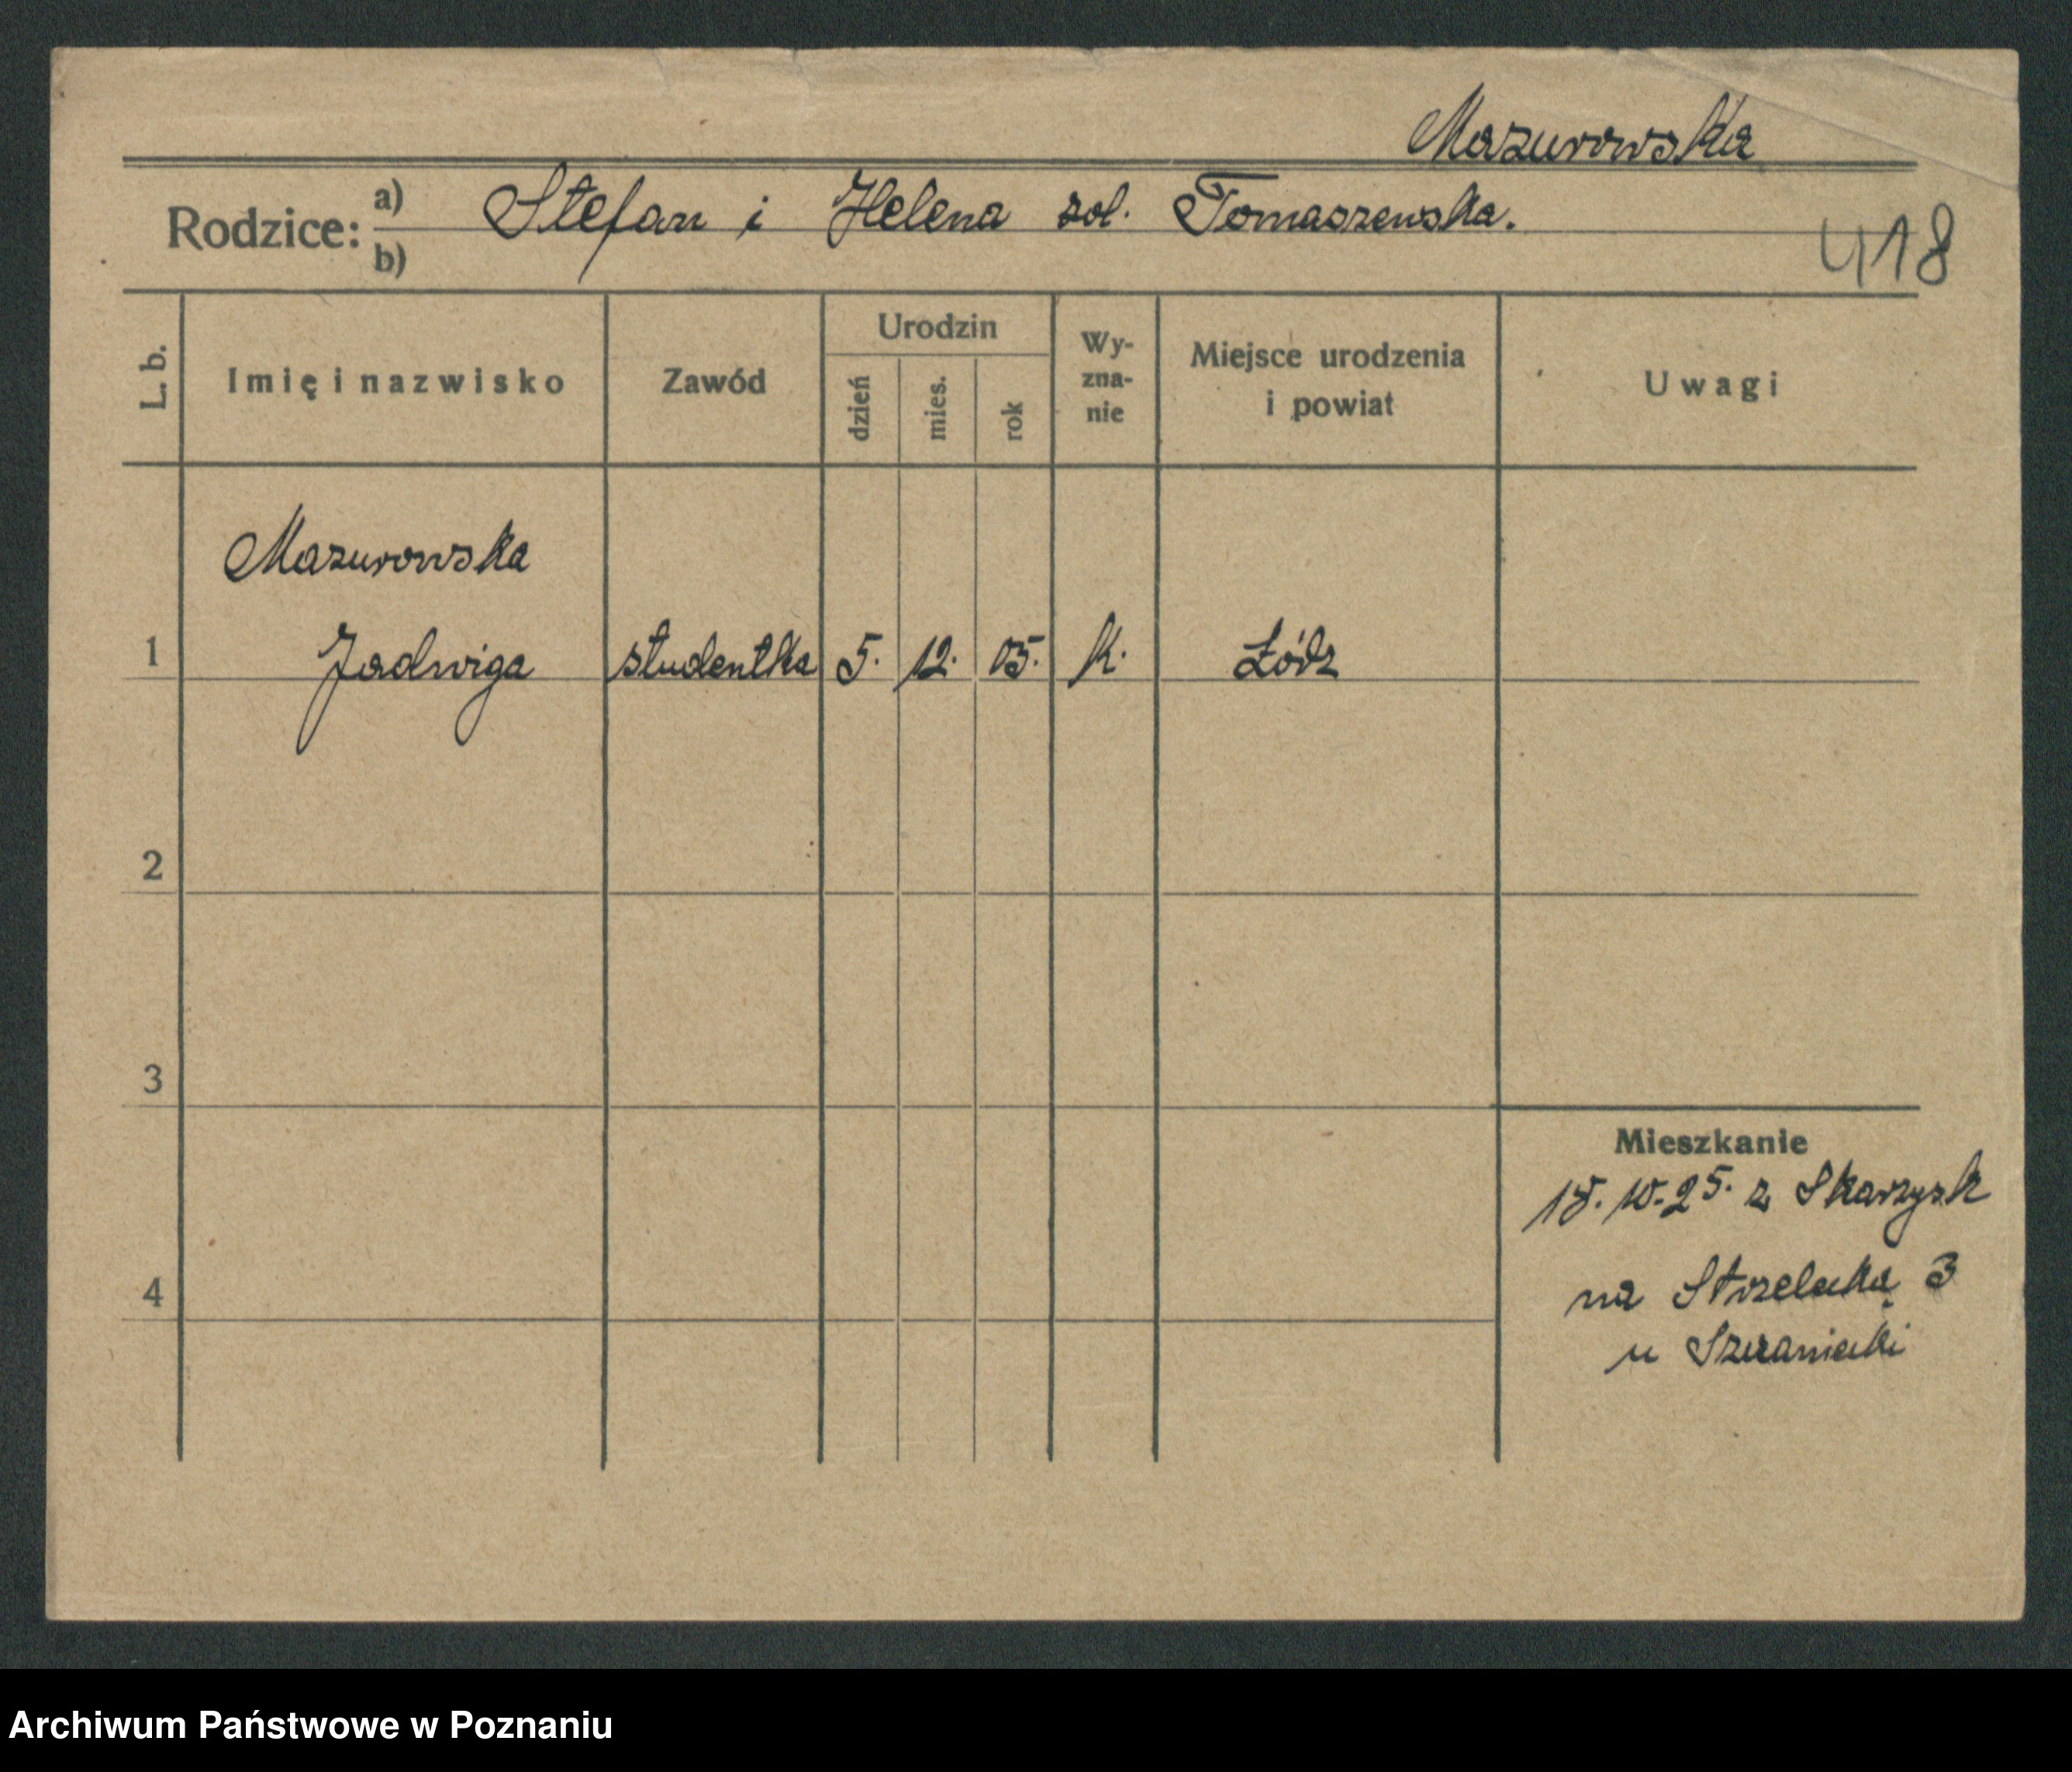 Mazurowska
Rodzice: a) Stefan i Helena zol. Tomaszewska.
b)
418
L. b. Imię i nazwisko Zawód Urodzin dzień mies. rok Wy-zna-nie Miejsce urodzenia i powiat Uwagi
Mazurowska
1 Jadwiga studentka 5. 12. 05. K. Łódz
2
3
Mieszkanie
10.25. z Skarzysk
4 na Strzelecką 3
u
Archiwum Państwowe w Poznaniu